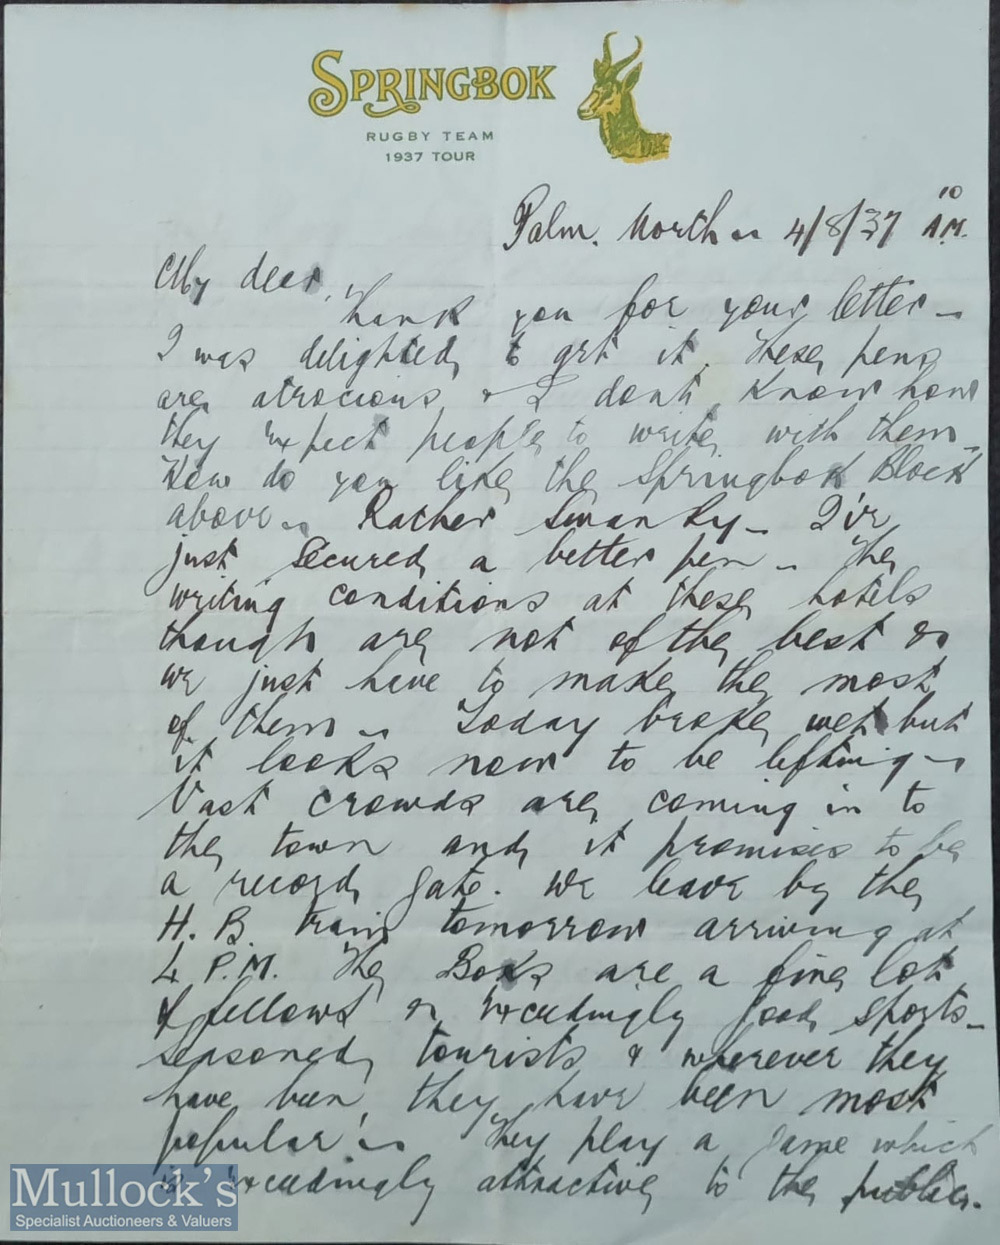 SPRINGBOK
RUGBY TEAM
1937 TOUR
Palm. North – 4/8/37 10 A.M.
My dear,
Thank you for your letter –
I was delighted to get it. These pens
are atrocious & I dont know how
they expect people to write with them –
How do you like the Springbok Block
above – Rather swanky – I've
just secured a better pen – The
writing conditions at these hotels
though are not of the best &
we just have to make the most
of them – Today broke wet but
it looks now to be lifting –
Vast crowds are coming in to
the town and it promises to be
a record gate. We leave by the
H. B. train tomorrow arriving at
4 P.M. The Boks are a fine lot
of fellows & exceedingly good sports –
seasoned tourists & wherever they
have been, they have been most
popular – They play a game which
is exceedingly attractive to the public.
Mullock's
Specialist Auctioneers & Valuers